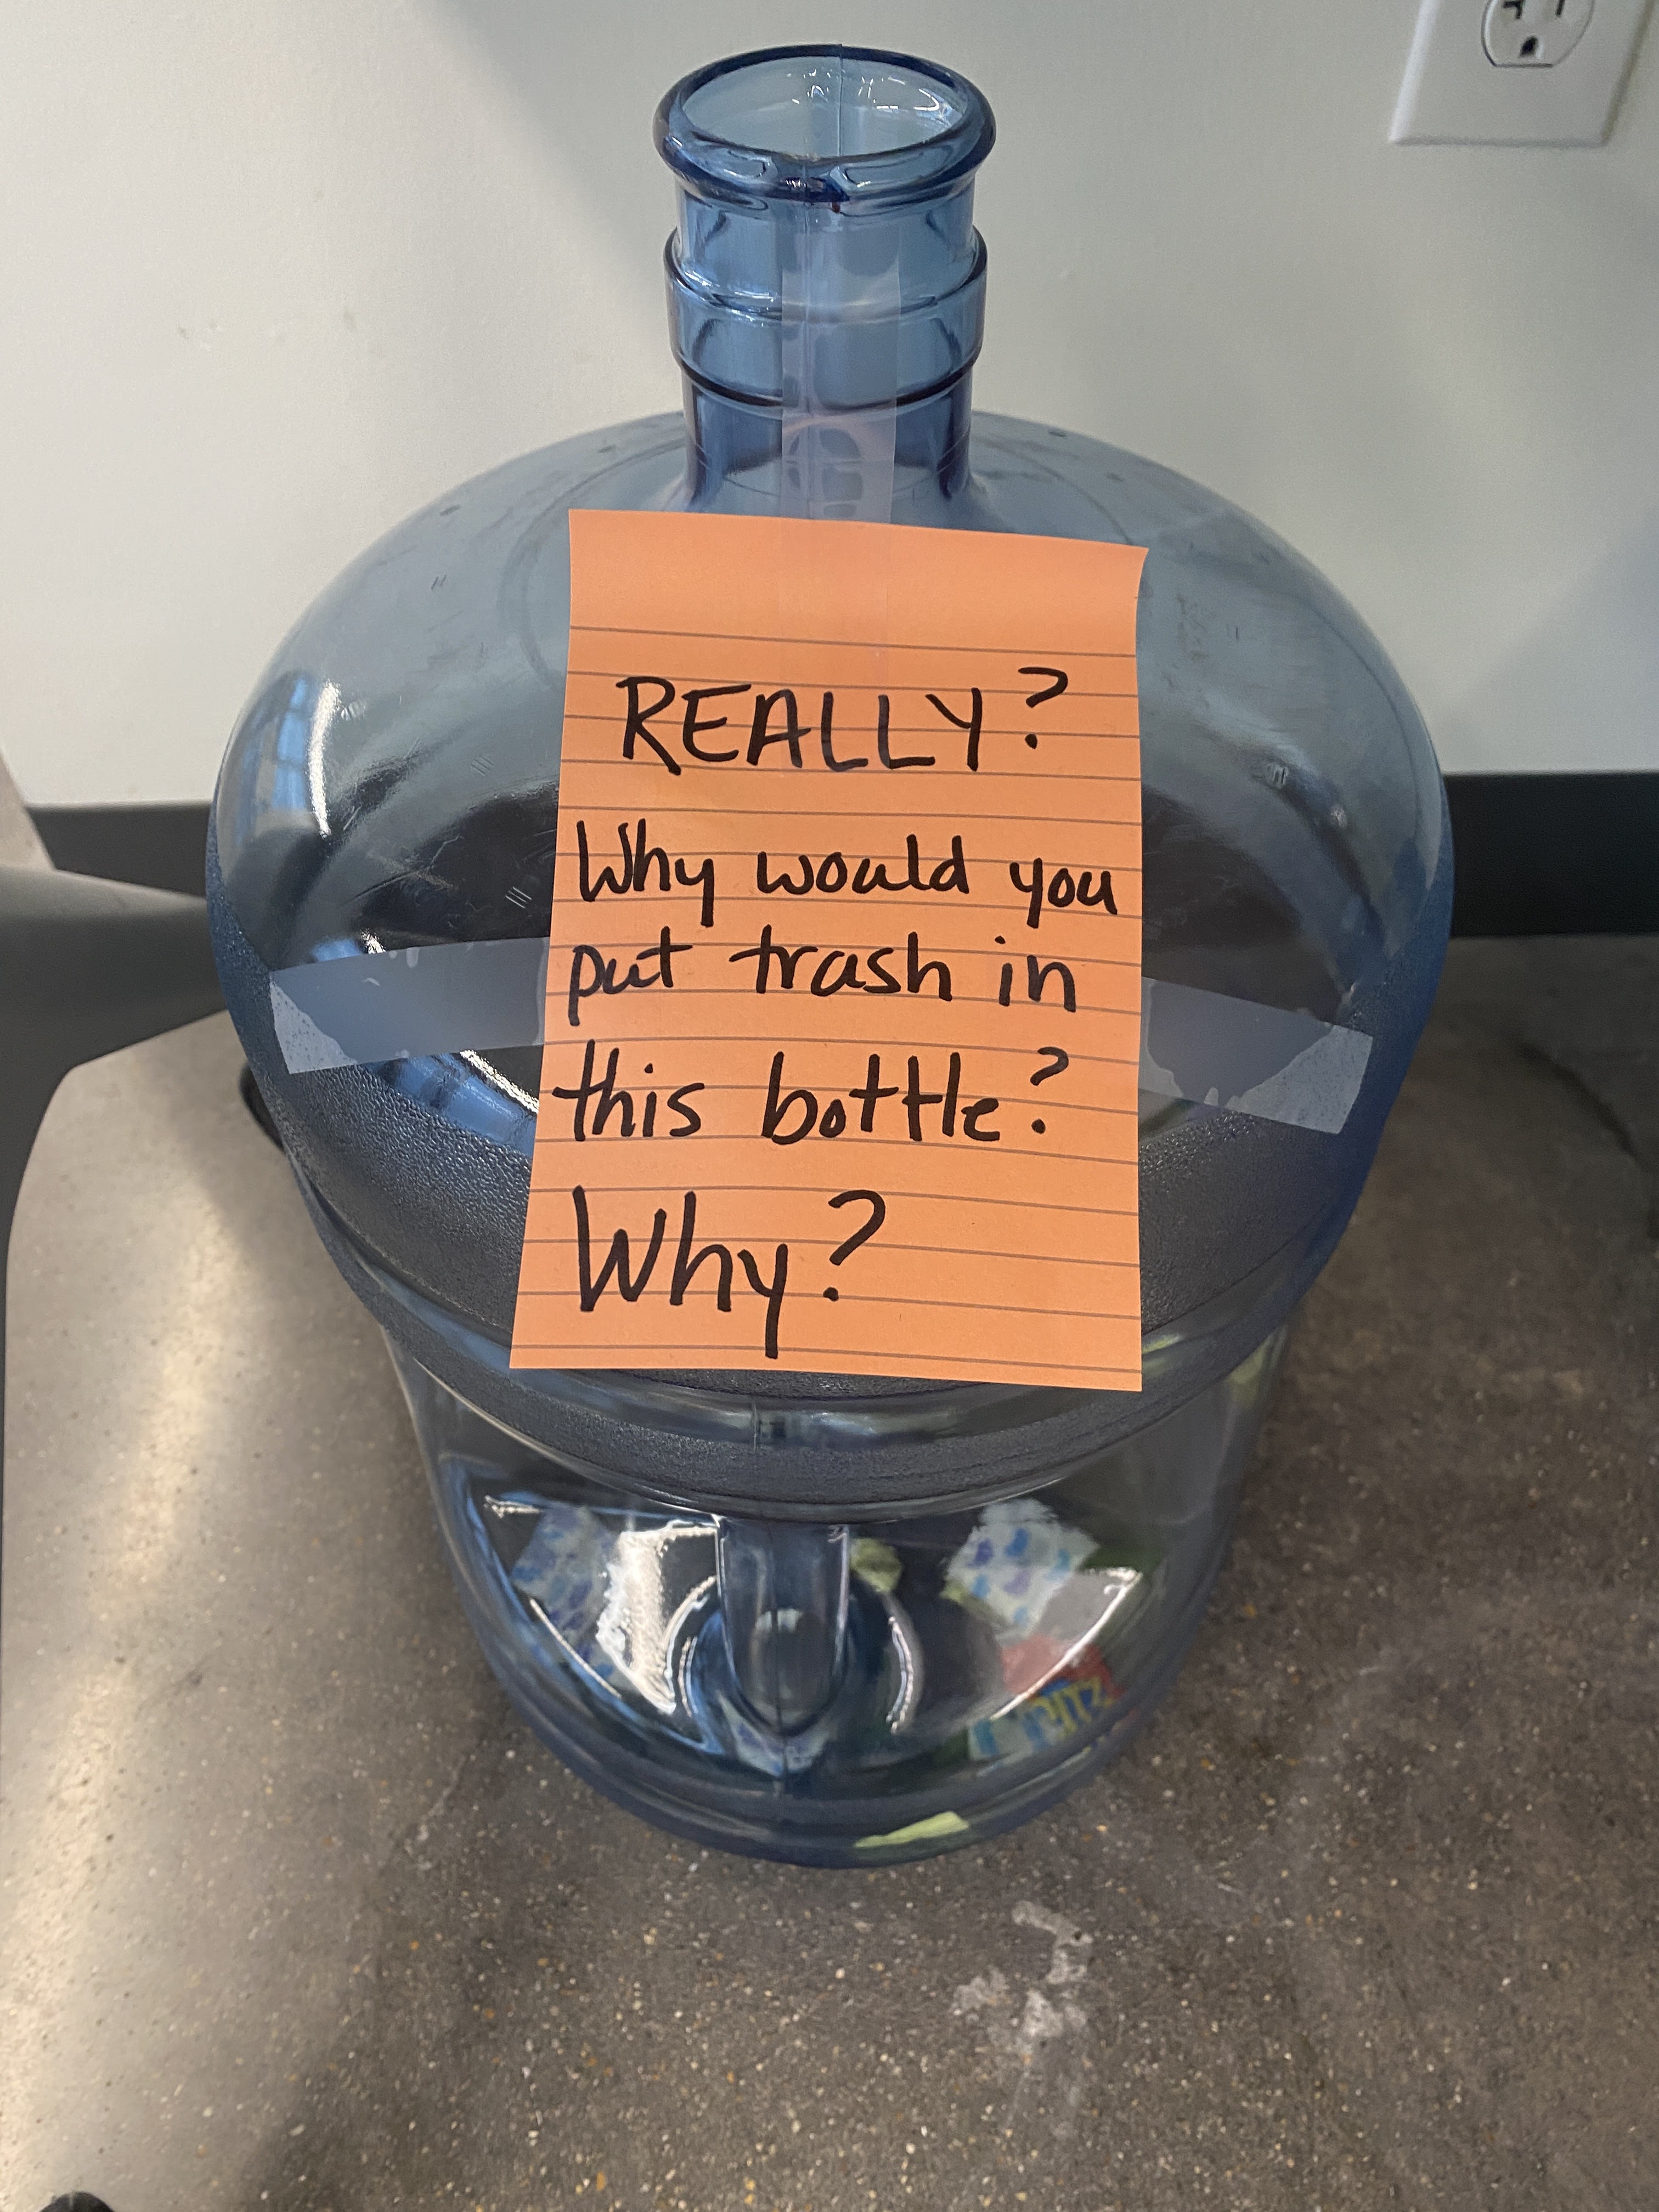 REALLY?
Why would you
put trash in
this bottle?
Why?
RITZ